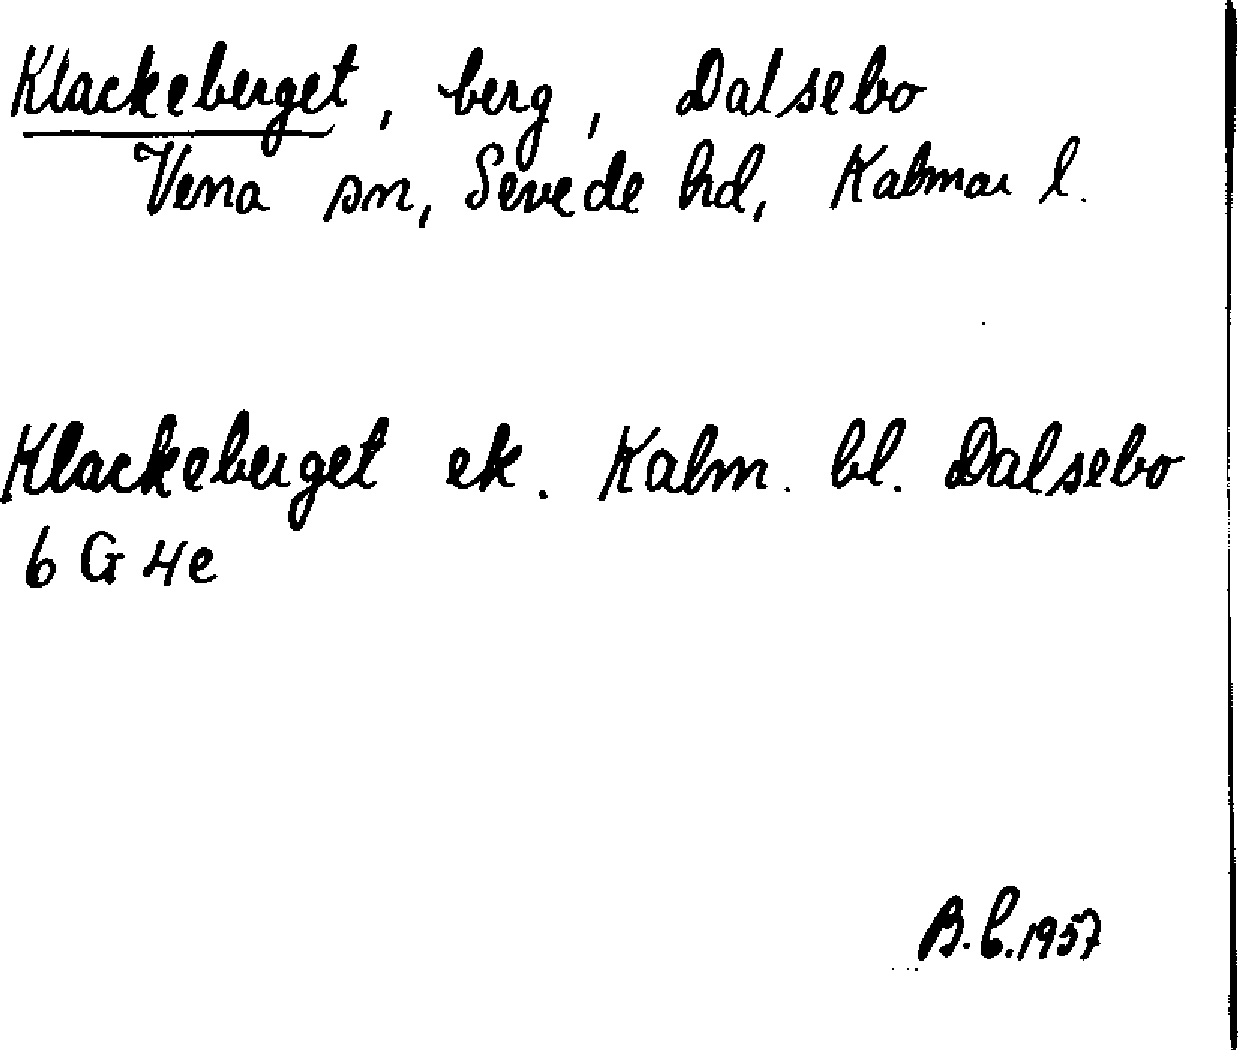 Klackeberget, berg, Dalsebo
Vena sn, Sevede hd, Kalmar l.
Klackeberget ek. Kalm. bl. Dalsebo
6 G 4e
B.L. 1957